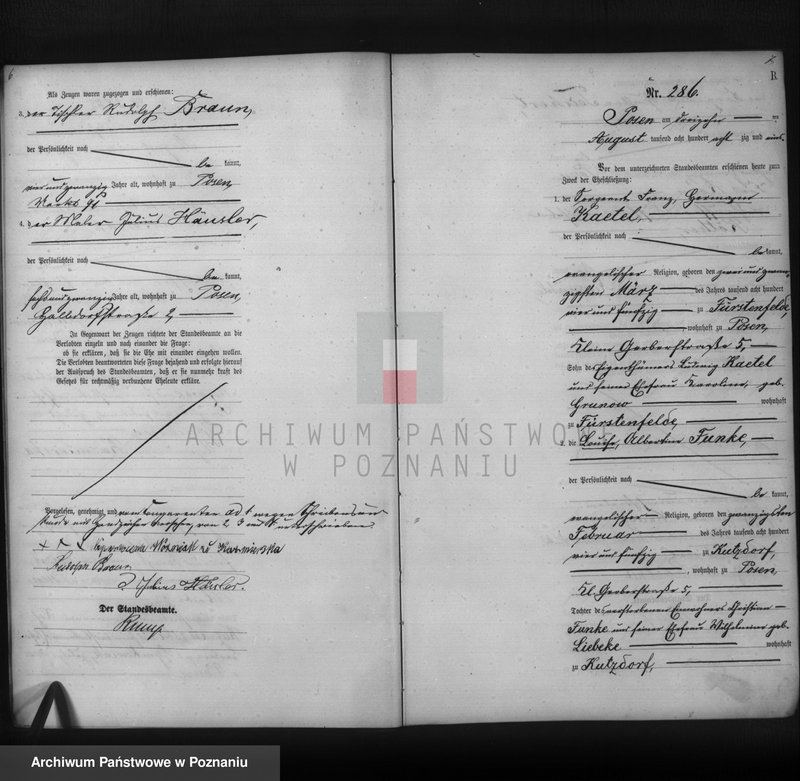 Als Zeugen waren zugezogen und erschienen:
3. der Tischler Rudolph Braun,
der Persönlichkeit nach
be kannt,
vier und zwanzig Jahre alt, wohnhaft zu Posen
4. der Maler Julius Häusler,
der Persönlichkeit nach
be kannt,
sechs und zwanzig Jahre alt, wohnhaft zu Posen,
Halbdorfstraße 2
In Gegenwart der Zeugen richtete der Standesbeamte an die
Verlobten einzeln und nach einander die Frage:
ob sie erklären, daß sie die Ehe mit einander eingehen wollen.
Die Verlobten beantworteten diese Frage bejahend und erfolgte hierauf
der Ausspruch des Standesbeamten, daß er sie nunmehr kraft des
Gesetzes für rechtmäßig verbundene Eheleute erkläre.
Vorgelesen, genehmigt und vom Comparenten ad 1 wegen Schreibens un
+++
Rudolph Braun
Julius Häusler.
Der Standesbeamte.
B.
Nr. 286.
Posen am dreizehn ten
August tausend acht hundert acht zig und eins
Vor dem unterzeichneten Standesbeamten erschienen heute zum
Zweck der Eheschließung:
1. der Sergeant Franz, Hermann
Kaetel,
der Persönlichkeit nach
be kannt,
evangelischer Religion, geboren den zwei und zwan
zigsten März des Jahres tausend acht hundert
vier und fünfzig zu Fürstenfelde
wohnhaft zu Posen,
Kleine Gerberstraße 5,
Sohn des Eigenthümers Ludwig Kaetel
und seiner Ehefrau Karoline, geb.
Grunow wohnhaft
zu Fürstenfelde,
2. die Louise, Albertine Funke,
der Persönlichkeit nach
be kannt,
evangelischer Religion, geboren den zwanzigsten
Februar des Jahres tausend acht hundert
vier und fünfzig zu Kutzdorf,
, wohnhaft zu Posen,
Kl. Gerberstraße 5,
Tochter des verstorbenen Einwohners Christian
Funke und seiner Ehefrau Wilhelmine geb.
Liebeke wohnhaft
zu Kutzdorf,
ARCHIWUM PAŃSTWOWE
W POZNANIU
Archiwum Państwowe w Poznaniu